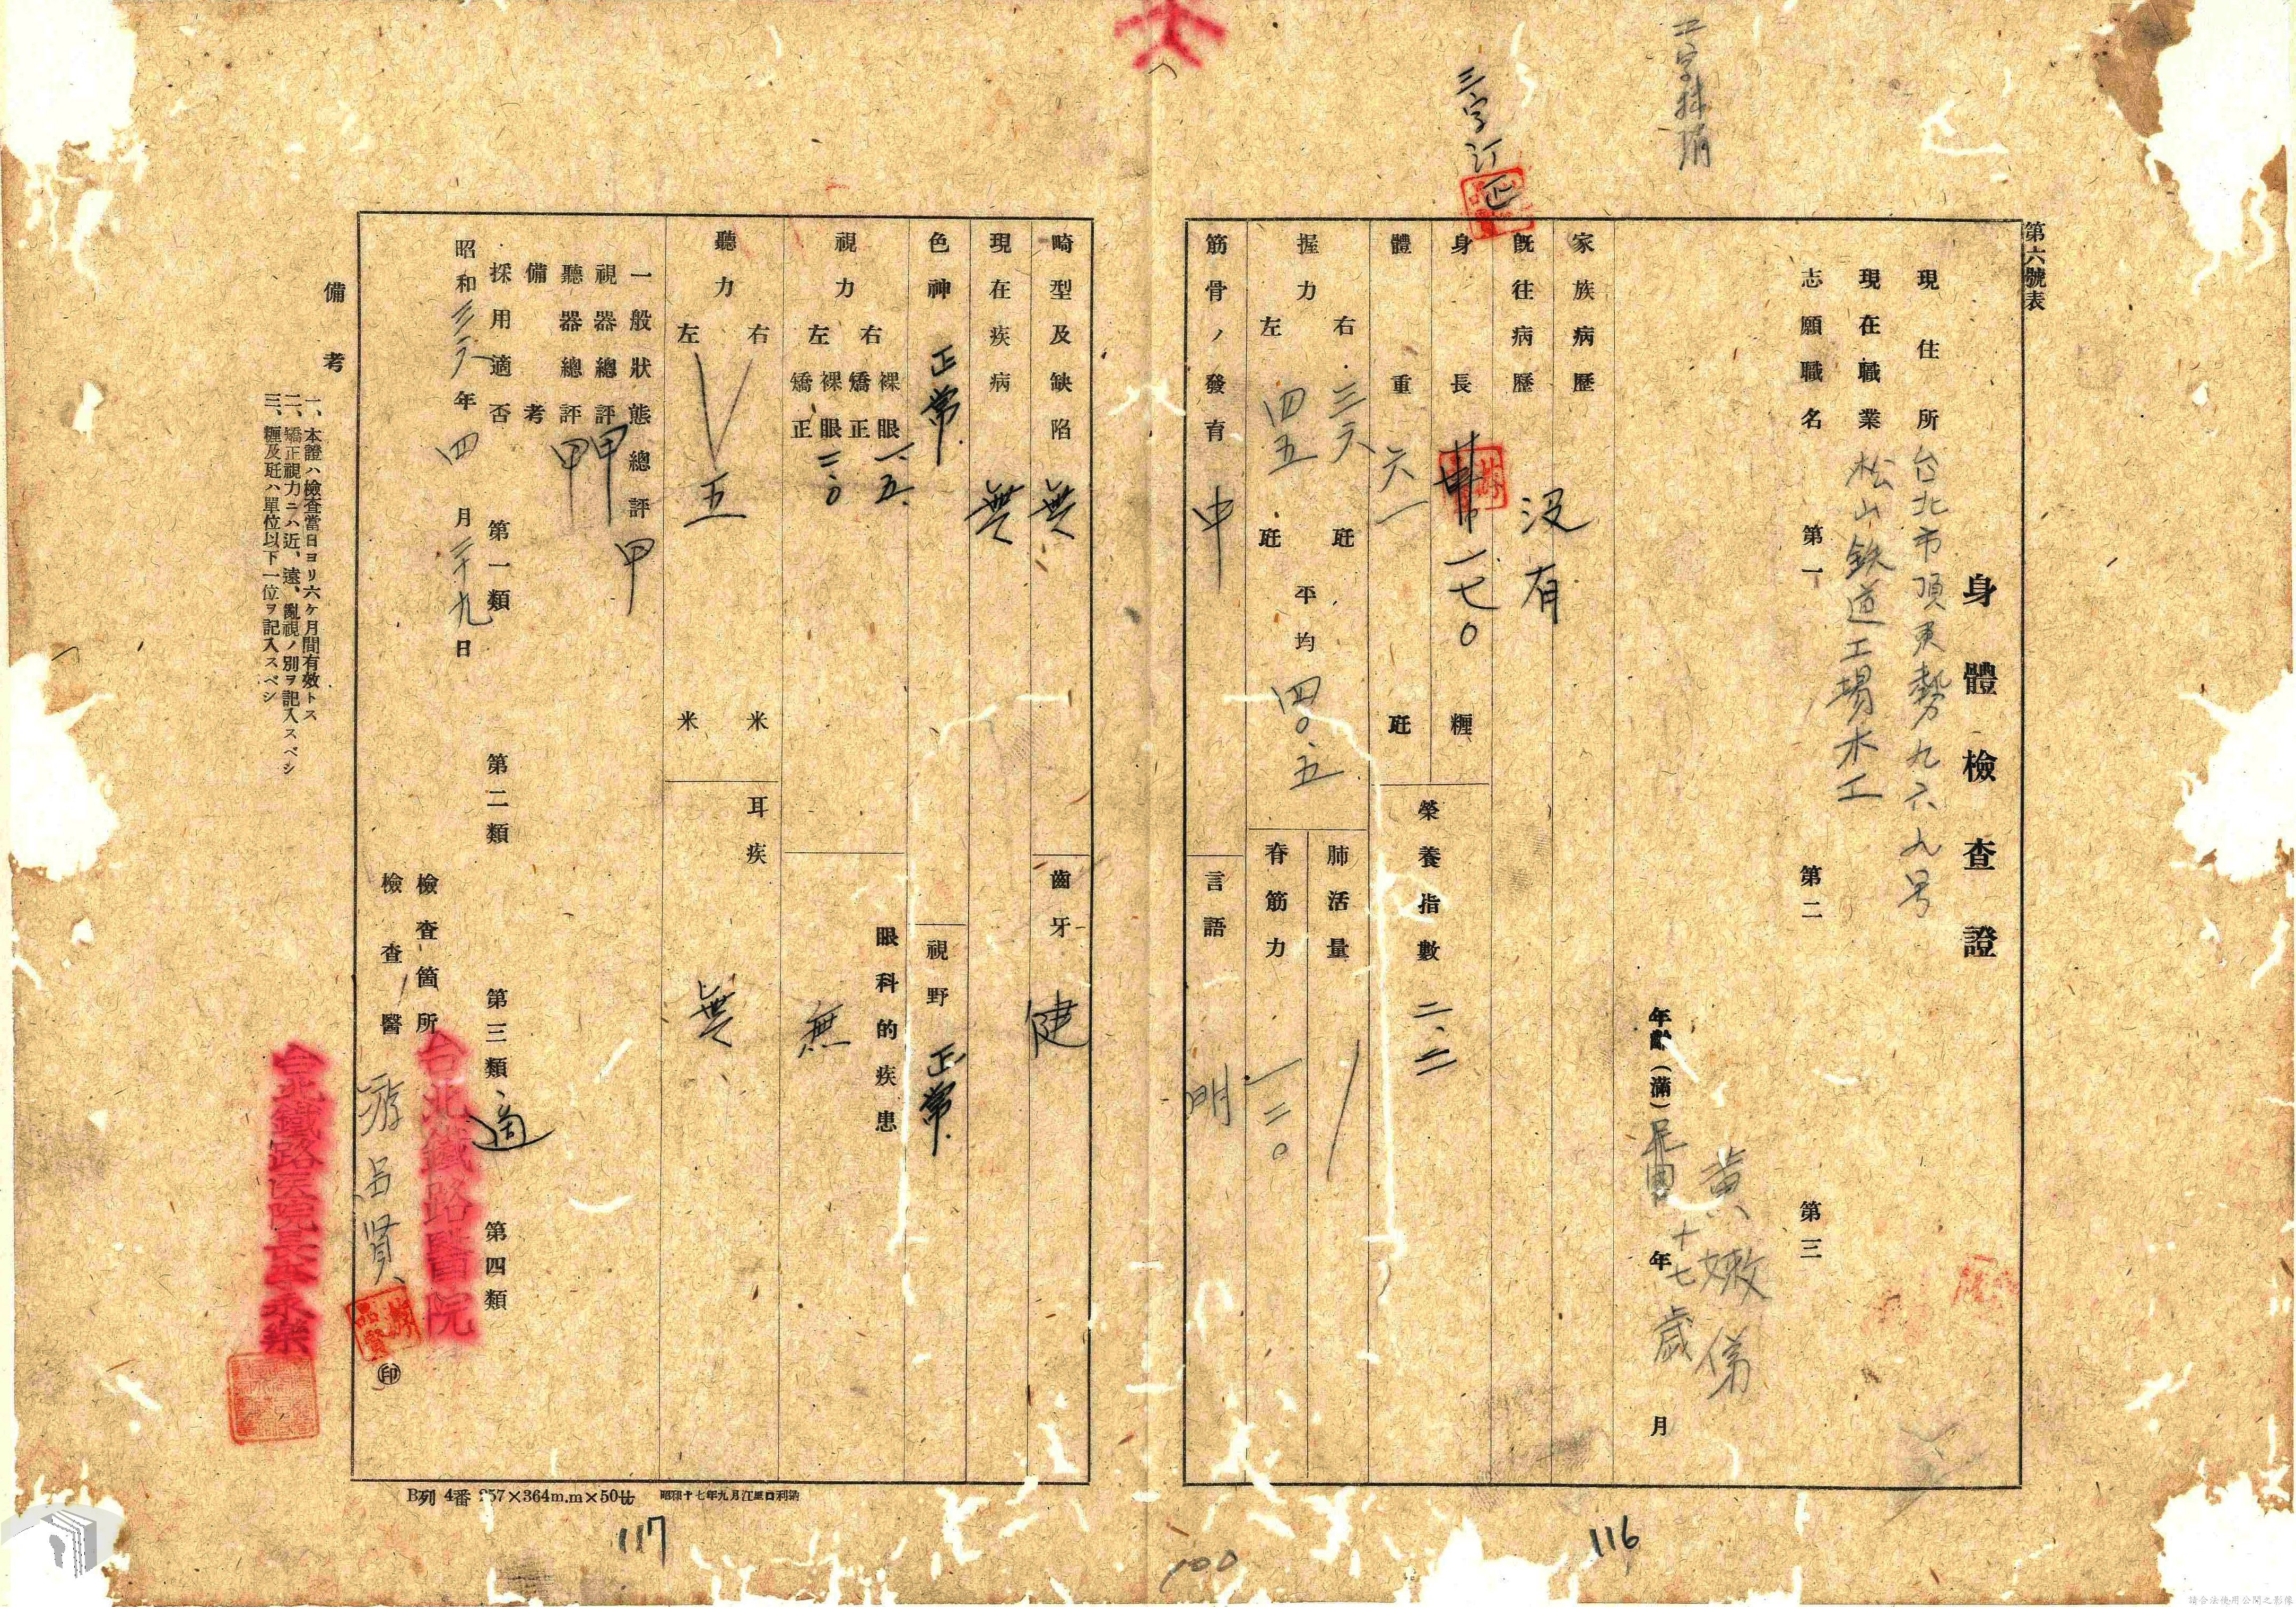 第六號表
身體檢查證
現住所 台北市頂東勢九六九号
現在職業 松山鉄道工場木工
志願職名 第一 第二 第三
黃嫩
年齡（滿） 十七年 歲 月
二字抹消
三字訂正
家族病歷
既往病歷 没有
身長 一七〇 糎
體重 六一 瓩
榮養指數 二、二
握力 右 三六 瓩
左 四五 瓩
平均 四〇、五
肺活量
脊筋力 一二〇
筋骨ノ發育 中
言語 明
畸型及缺陷 無
齒牙 健
現在疾病 無
色神 正常
視野 正常
視力 右 裸眼 一、五
矯正
左 裸眼 二、〇
矯正
眼科的疾患 無
聽力 右 米
左 五 米
耳疾 無
一般狀態總評 甲
視器總評 甲
聽器總評 甲
備考
採用適否 第一類 第二類 第三類 適 第四類
昭和 年四月 九日
檢查箇所 台北鐵路醫院
檢查醫 游呂贤 ㊞
台北鐵路医院長
備考
一、本證ハ檢查當日ヨリ六ケ月間有效トス
二、矯正視力ニハ近、遠、亂視ノ別ヲ記入スベシ
三、糎及瓩ハ單位以下一位ヲ記入スベシ
B列 4番 257×364m.m×50廿
117
100
116
請合法使用公開之影像